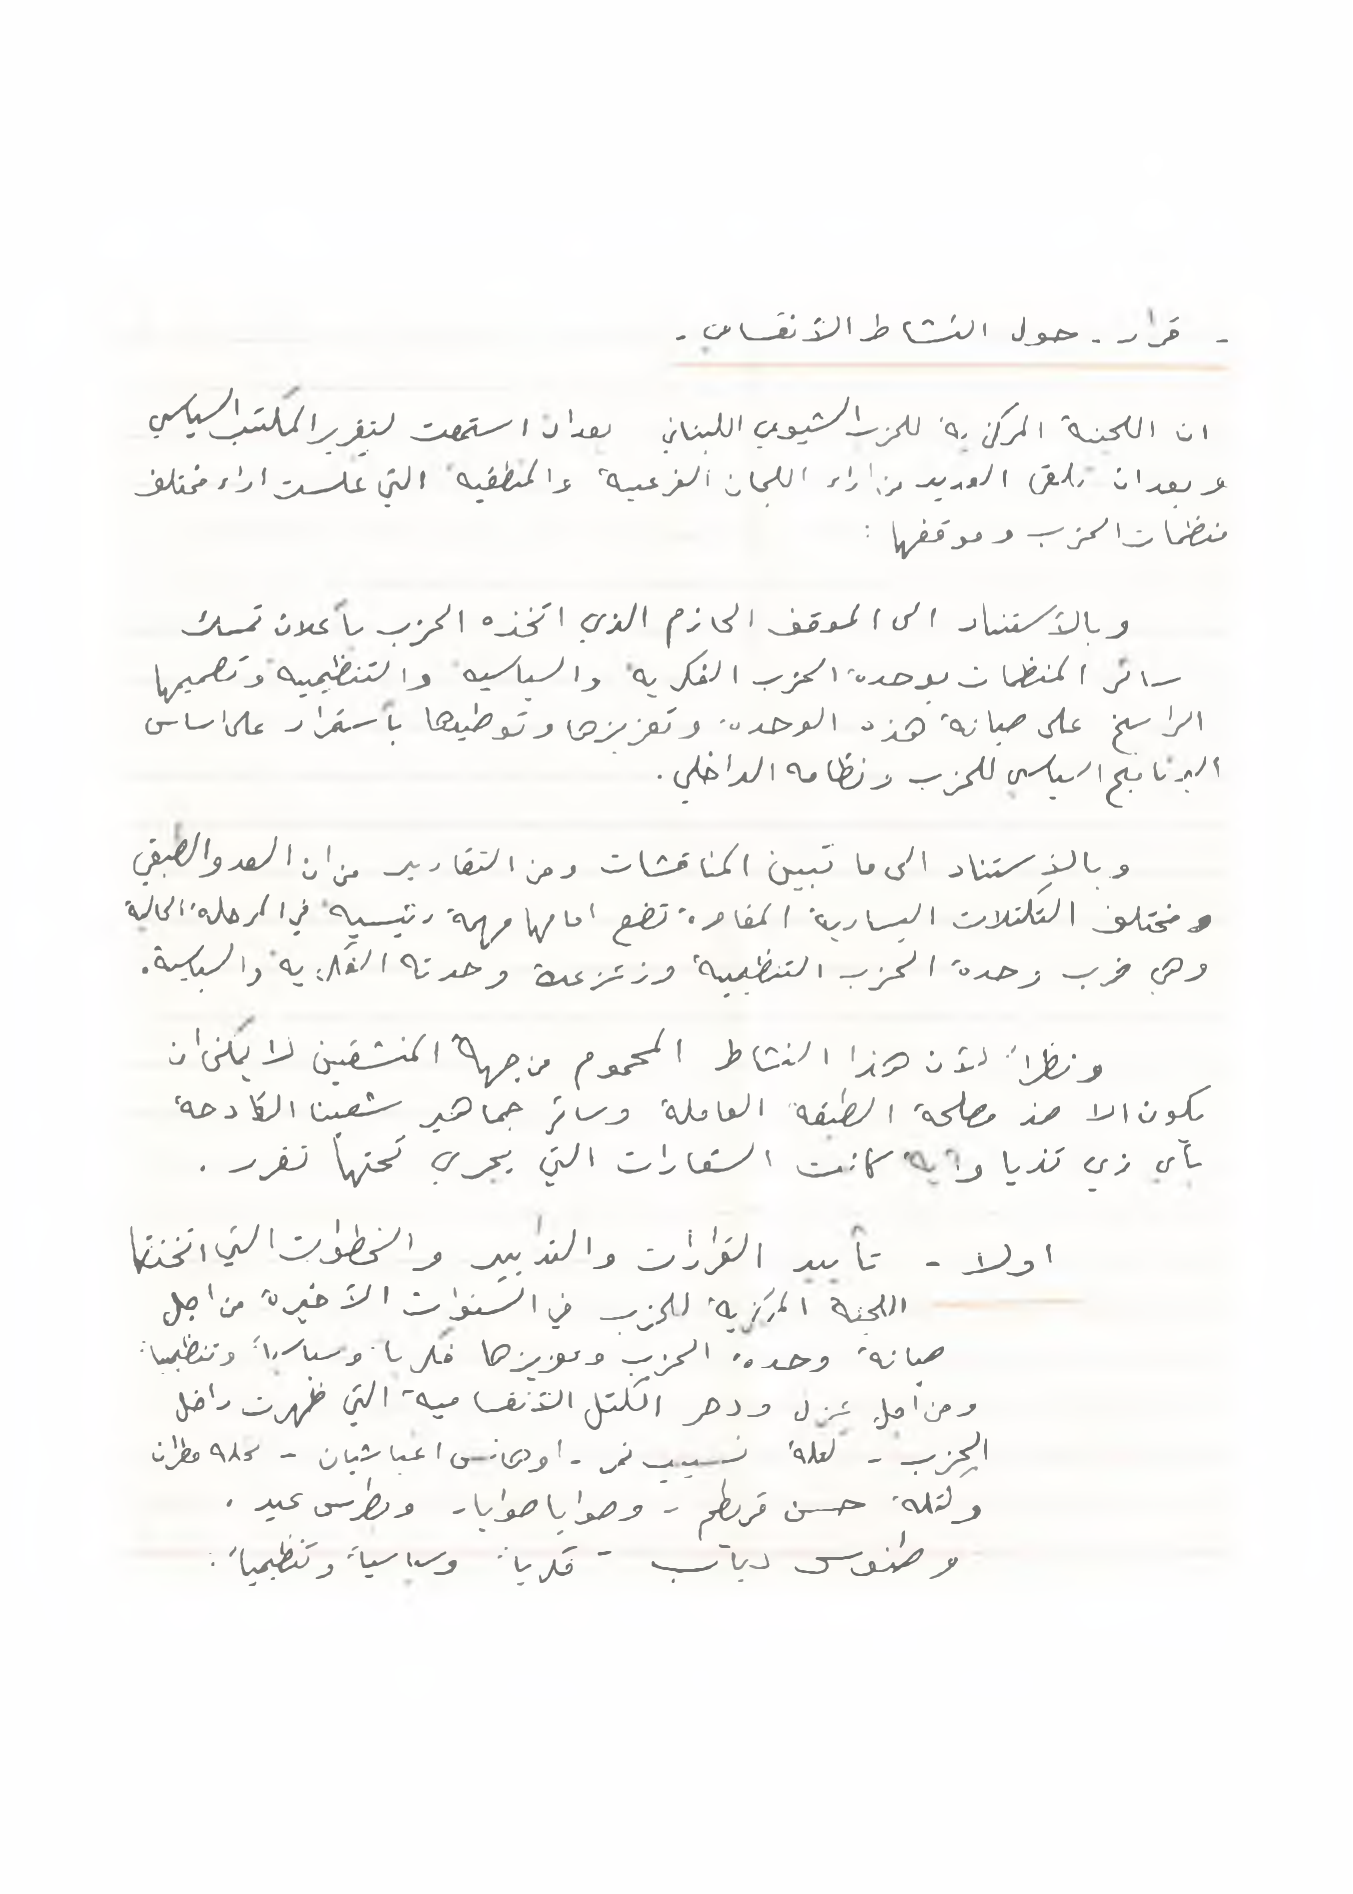 - قرار - حول النشاط الأنقسامي -
ان اللجنة المركزية للحزب الشيوعي اللبناني بعد ان استمعت لتقرير المكتب السياسي
وبعد ان تلقى العديد من اراء اللجان الفرعية والمنطقية التي عكست اراء مختلف
منظمات الحزب وموقفها :
وبالأستناد الى الموقف الحازم الذي اتخذه الحزب بأعلان تمسك
سائر المنظمات بوحدة الحزب الفكرية والسياسية والتنظيمية وتصميمها
الراسخ على صيانة هذه الوحدة وتعزيزها وتوطيدها بأستمرار على اساس
البرنامج السياسي للحزب ونظامه الداخلي .
وبالأستناد الى ما تبين المناقشات ومن التقارير من ان العدو الطبقي
ومختلف التكتلات اليسارية المغامرة تضع امامها مهمة رئيسية في المرحلة الحالية
وهي ضرب وحدة الحزب التنظيمية وزعزعة وحدته الفكرية والسياسية .
ونظراً لأن هذا النشاط المحموم من جهة المنشقين لا يمكن ان
يكون الا ضد مصلحة الطبقة العاملة وسائر جماهير شعبنا الكادحة
بأي زي تزيا وأية كانت الشعارات التي يجري تحتها تقرر .
اولا - تأييد القرارات والتدابير والخطوات التي اتخذتها
اللجنة المركزية للحزب في السنوات الأخيرة من اجل
صيانة وحدة الحزب وتعزيزها فكرياً وسياسياً وتنظيمياً
ومن اجل عزل ودحر الكتل الأنقسامية التي ظهرت داخل
الحزب - كتلة نسيب نمر - اوهانس اغباشيان - نخله مطران
وكتلة حسن قريطم - وصوايا صوايا - وبطرس عيد .
وطنوس دياب - فكرياً وسياسياً وتنظيمياً .